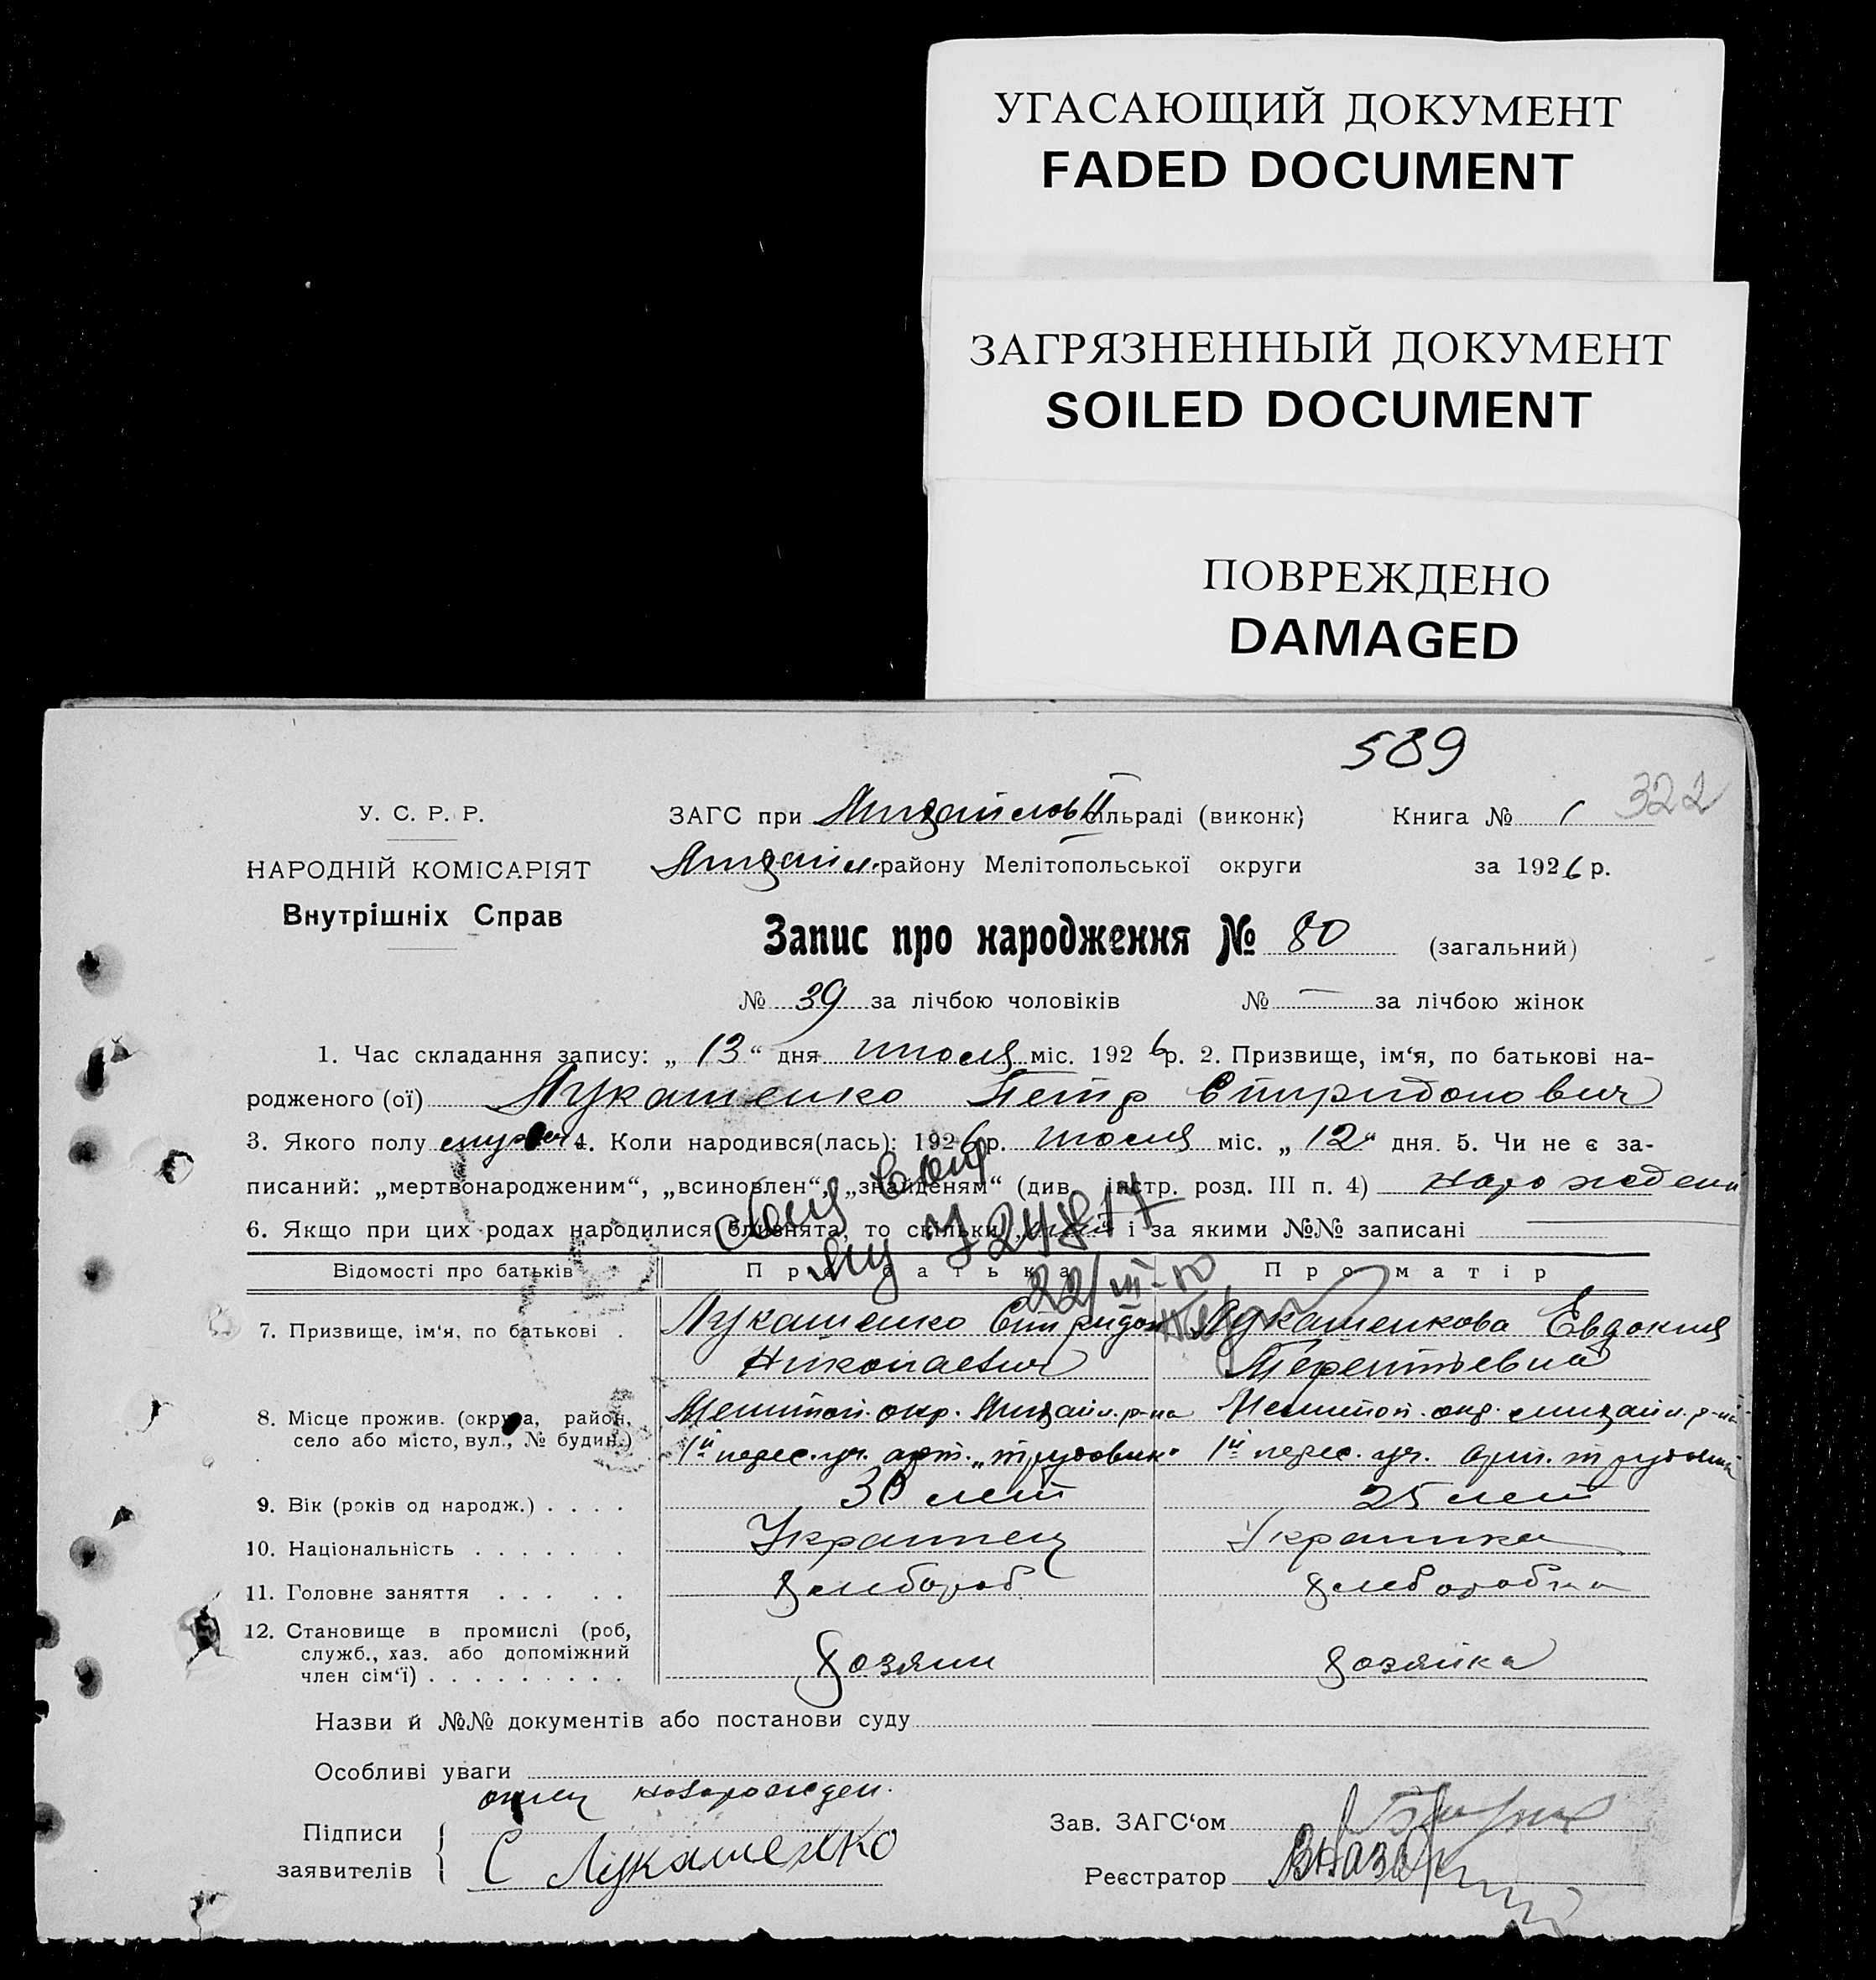 УГАСАЮЩИЙ ДОКУМЕНТ
FADED DOCUMENT
ЗАГРЯЗНЕННЫЙ ДОКУМЕНТ
SOILED DOCUMENT
ПОВРЕЖДЕНО
DAMAGED
589
322
У. С. Р. Р.
НАРОДНІЙ КОМІСАРІЯТ
Внутрішніх Справ
ЗАГС при Михайлов ільраді (виконк)
Книга № 1
Михайл. району Мелітопольської округи
за 1926 р.
Запис про народження № 80 (загальний)
№ 39 за лічбою чоловіків № — за лічбою жінок
1. Час складання запису: „ 13 “ дня июля міс. 1926 р. 2. Призвище, ім‘я, по батькові на-
родженого (ої) Лукашенко Петр Спиридонович
3. Якого полу муж. 4. Коли народився(лась): 1926 р. июля міс. „ 12 “ дня. 5. Чи не є за-
писаний: „мертвонародженим“, „всиновлен“, „знайденям“ (див. інстр. розд. III п. 4)
6. Якщо при цих родах народилися близнята, то скільки і за якими №№ записані
22/III-
Відомості про батьків Про батька Про матір
7. Призвище, ім‘я, по батькові . Лукашенко Спиридон Лукашенкова Евдокия
Николаевич Терентьевна
8. Місце прожив. (округа, район, Мелитоп. окр. Михайл. р-на Мелитоп. окр. михайл. р-на
село або місто, вул., № будин.) 1й перес. уч. арт. „трудовик“ 1й перес. уч. арт. трудовик
9. Вік (років од народж.) . . . . 30 лет 25 лет
10. Національність . . . . . . . Украинец Украинка
11. Головне заняття . . . . . Хлебороб хлеборобка
12. Становище в промислі (роб,
служб., хаз. або допоміжний
член сім‘ї) . . . . . . . . . Хозяин Хозяйка
Назви й №№ документів або постанови суду
Особливі уваги
отец новорожден.
Підписи
заявителів
С Лукашенко
Зав. ЗАГС‘ом
Реєстратор